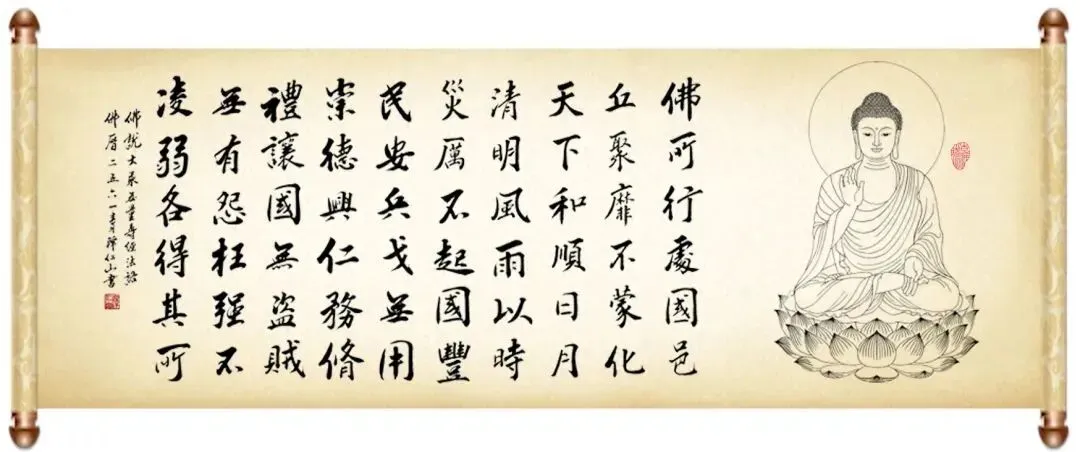 佛所行處國邑
丘聚靡不蒙化
天下和順日月
清明風雨以時
災厲不起國豐
民安兵戈無用
崇德興仁務脩
禮讓國無盜賊
無有怨枉强不
凌弱各得其所
佛説大乘無量壽經法語
佛曆二五六一春月釋仁山書